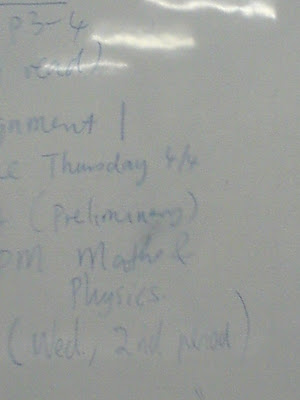 p3-4
read)
gnment 1
e Thursday 4/4
(Preliminary)
OM Maths &
Physics
(Wed, 2nd period)